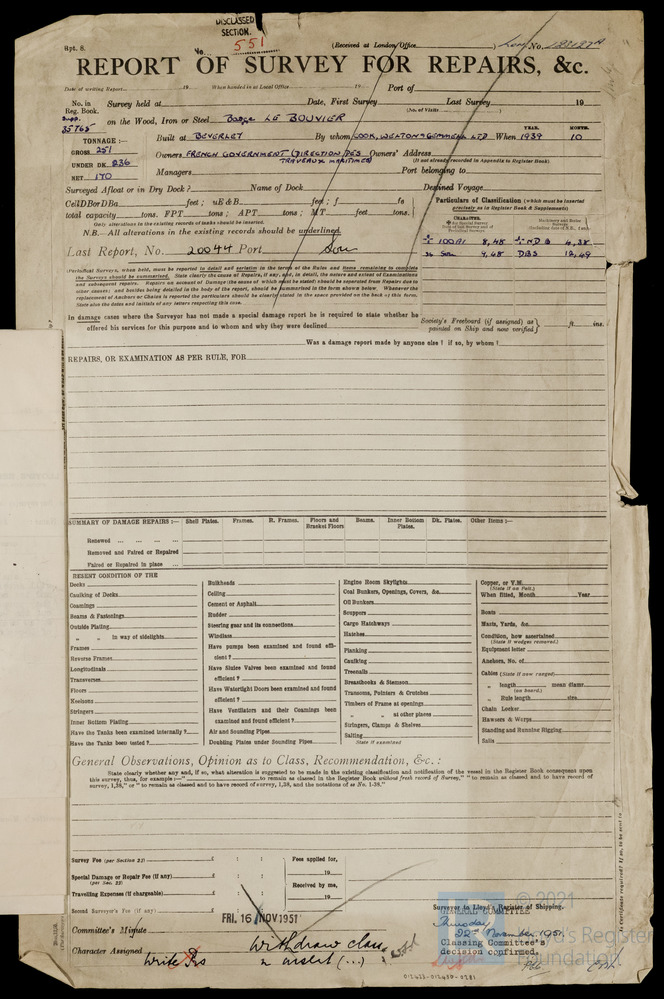 DISCLASSED
SECTION.
Rpt. 8.
No. 551
(Received at London Office
No.
REPORT OF SURVEY FOR REPAIRS, &c.
Date of writing Report 19 When handed in at Local Office 19 Port of
No. in Reg. Book. Survey held at Date, First Survey Last Survey 19
(No. of Visits )
Supp. 35765 on the Wood, Iron or Steel Barge LE BOUVIER
TONNAGE :— Built at BEVERLEY By whom COOK, WELTON & GEMMELL LTD When 1939 10
YEAR. MONTH.
GROSS 251
UNDER DK. 236
NET 170
Owners FRENCH GOVERNMENT (DIRECTION DES TRAVEAUX MARITIMES) Owners' Address
(If not already recorded in Appendix to Register Book)
Managers Port belonging to
Surveyed Afloat or in Dry Dock ? Name of Dock Destined Voyage
total capacity tons. FPT tons ; APT tons ; MT feet tons.
Only alterations in the existing records of tanks should be inserted.
N.B.—All alterations in the existing records should be underlined.
Particulars of Classification (which must be inserted
precisely as in Register Book & Supplements)
CHARACTER.
100A1 8,48 N D B 4,38
9,48 DBS 12,49
Last Report, No. 20044 Port Sou
(Periodical Surveys, when held, must be reported in detail and seriatim in the terms of the Rules and items remaining to complete
the Surveys should be summarised. State clearly the cause of Repairs, if any, and, in detail, the nature and extent of Examinations
and subsequent repairs. Repairs on account of Damage (the cause of which must be stated) should be separated from Repairs due to
other causes; and besides being detailed in the body of the report, should be summarised in the form shown below. Whenever the
replacement of Anchors or Chains is reported the particulars should be clearly stated in the space provided on the back of this form.
State also the dates and initials of any letters respecting this case.
In damage cases where the Surveyor has not made a special damage report he is required to state whether he
offered his services for this purpose and to whom and why they were declined
Society's Freeboard (if assigned) as
painted on Ship and now verified ft. ins.
Was a damage report made by anyone else ? if so, by whom !
REPAIRS, OR EXAMINATION AS PER RULE, FOR
SUMMARY OF DAMAGE REPAIRS :— Shell Plates. Frames. R. Frames. Floors and Bracket Floors Beams. Inner Bottom Plates. Dk. Plates. Other Items :—
Renewed ... ... ...
Removed and Faired or Repaired
Faired or Repaired in place ...
RESENT CONDITION OF THE
Decks
Caulking of Decks
Coamings
Beams & Fastenings
Outside Plating
" " in way of sidelights
Frames
Reverse Frames
Longitudinals
Transverses
Floors
Keelsons
Stringers
Inner Bottom Plating
Have the Tanks been examined internally ?
Have the Tanks been tested ?
Bulkheads
Ceiling
Cement or Asphalt
Rudder
Steering gear and its connections
Windlass
Have pumps been examined and found effi-
cient ?
Have Sluice Valves been examined and found
efficient ?
Have Watertight Doors been examined and found
efficient ?
Have Ventilators and their Coamings been
examined and found efficient ?
Air and Sounding Pipes
Doubling Plates under Sounding Pipes
Engine Room Skylights
Coal Bunkers, Openings, Covers, &c.
Oil Bunkers
Scuppers
Cargo Hatchways
Hatches
Planking
Caulking
Treenails
Breasthooks & Stemson
Transoms, Pointers & Crutches
Timbers of Frame at openings
" " at other places
Stringers, Clamps & Shelves
Salting
State if examined
Copper, or Y.M.
(State if on Felt.)
When fitted, Month Year
Boats
Masts, Yards, &c.
Condition, how ascertained
(State if wedges removed)
Equipment letter
Anchors, No. of
Cables (State if now ranged)
" length mean diamr.
(on board)
" Rule length size
Chain Locker
Hawsers & Warps
Standing and Running Rigging
Sails
General Observations, Opinion as to Class, Recommendation, &c. :
State clearly whether any, and, if so, what alteration is suggested to be made in the existing classification and notification of the vessel in the Register Book consequent upon
this survey, thus, for example :—" to remain as classed in the Register Book without fresh record of Survey," "to remain as classed and to have record of
survey, 1,38," or "to remain as classed and to have record of survey, 1,38, and the notations of ss No. 1-38."
Survey Fee (per Section 29) £ : : Fees applied for,
19
Special Damage or Repair Fee (if any) £ : :
(per Sec. 29)
Received by me,
Travelling Expenses (if chargeable) £ : : 19
Second Surveyor's Fee (if any) £
Surveyor to Lloyd's Register of Shipping.
GENERAL COMMITTEE
Thursday
22nd November 1951
Classing Committee's
decision confirmed.
FRI. 16 NOV 1951
Committee's Minute
Character Assigned Withdraw class
Write Prs
012433-012450-0281
© 2021
Lloyd's Register
Foundation